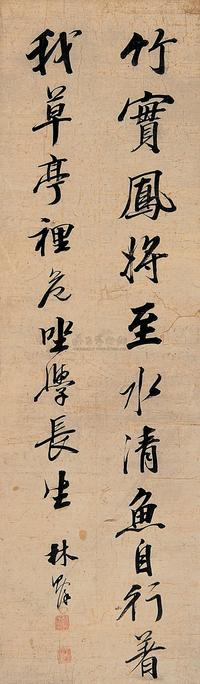 竹實鳳將至水清魚自行着
我草亭裡危坐學長生
林